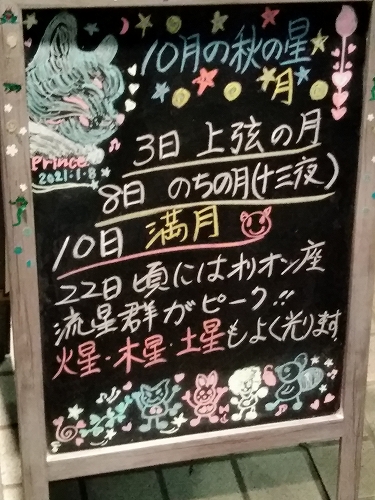 10月の秋の星
月
Prince
2021.1.8
3日 上弦の月
8日 のちの月(十三夜)
10日 満月
22日頃にはオリオン座
流星群がピーク!!
火星・木星・土星もよく光ります